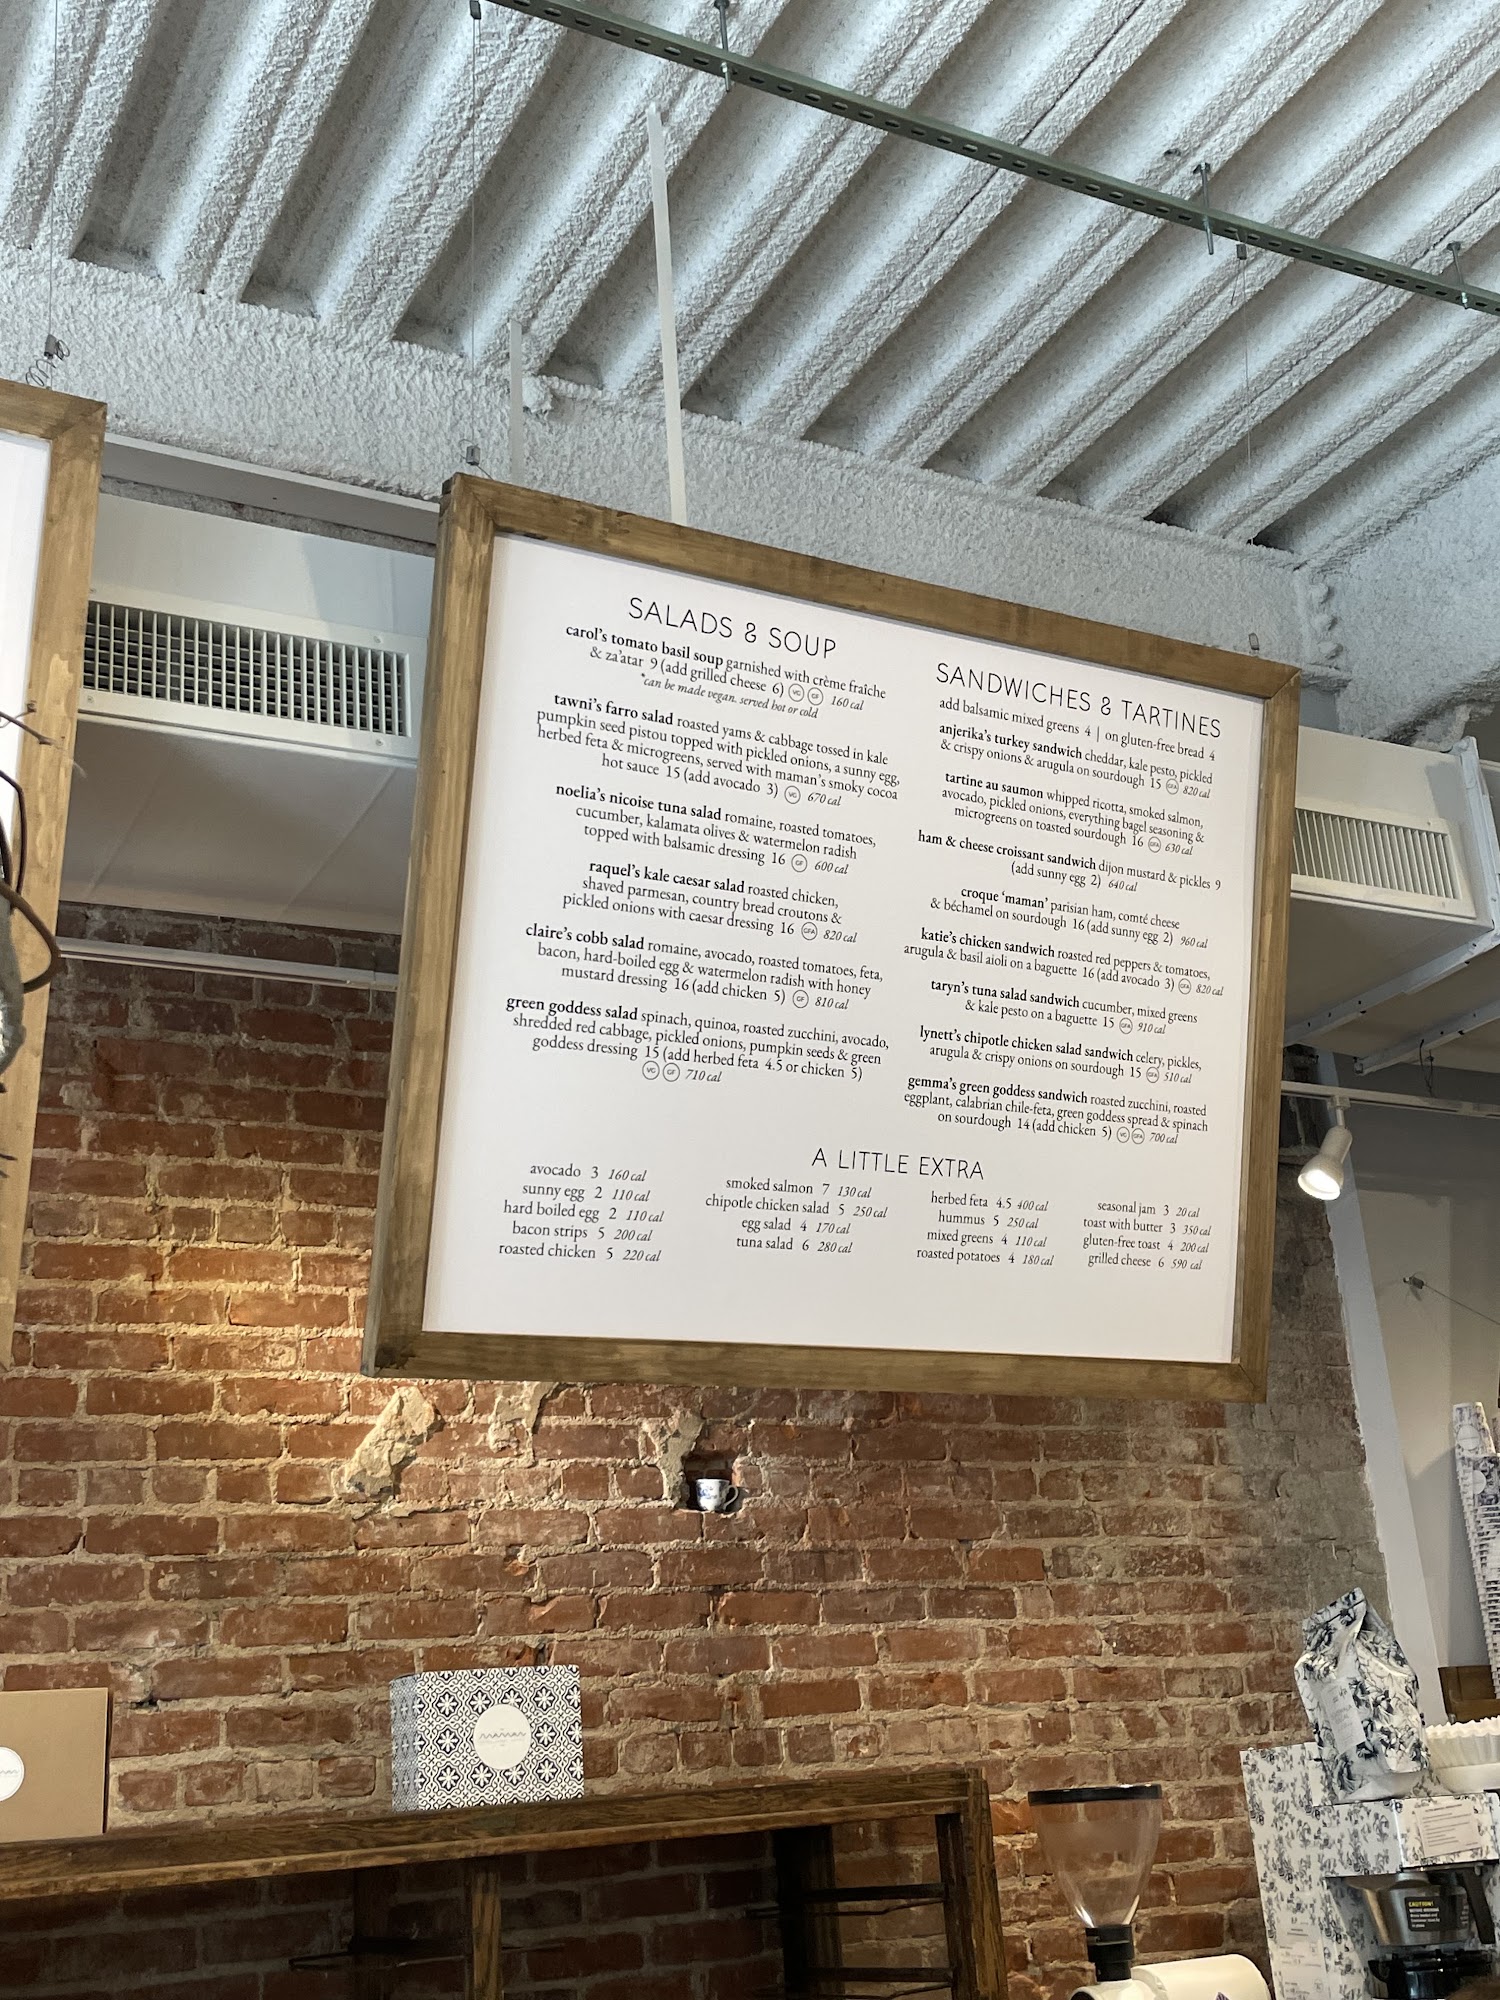 SALADS & SOUP
carol's tomato basil soup garnished with crème fraîche
& za'atar 9 (add grilled cheese 6) VG GF 160 cal
*can be made vegan. served hot or cold
tawni's farro salad roasted yams & cabbage tossed in kale
pumpkin seed pistou topped with pickled onions, a sunny egg,
herbed feta & microgreens, served with maman's smoky cocoa
hot sauce 15 (add avocado 3) VG 670 cal
noelia's nicoise tuna salad romaine, roasted tomatoes,
cucumber, kalamata olives & watermelon radish
topped with balsamic dressing 16 GF 600 cal
raquel's kale caesar salad roasted chicken,
shaved parmesan, country bread croutons &
pickled onions with caesar dressing 16 GFA 820 cal
claire's cobb salad romaine, avocado, roasted tomatoes, feta,
bacon, hard-boiled egg & watermelon radish with honey
mustard dressing 16 (add chicken 5) GF 810 cal
green goddess salad spinach, quinoa, roasted zucchini, avocado,
shredded red cabbage, pickled onions, pumpkin seeds & green
goddess dressing 15 (add herbed feta 4.5 or chicken 5)
VG GF 710 cal
SANDWICHES & TARTINES
add balsamic mixed greens 4 | on gluten-free bread 4
anjerika's turkey sandwich cheddar, kale pesto, pickled
& crispy onions & arugula on sourdough 15 GFA 820 cal
tartine au saumon whipped ricotta, smoked salmon,
avocado, pickled onions, everything bagel seasoning &
microgreens on toasted sourdough 16 GFA 630 cal
ham & cheese croissant sandwich dijon mustard & pickles 9
(add sunny egg 2) 640 cal
croque 'maman' parisian ham, comté cheese
& béchamel on sourdough 16 (add sunny egg 2) 960 cal
katie's chicken sandwich roasted red peppers & tomatoes,
arugula & basil aioli on a baguette 16 (add avocado 3) GFA 820 cal
taryn's tuna salad sandwich cucumber, mixed greens
& kale pesto on a baguette 15 GFA 910 cal
lynett's chipotle chicken salad sandwich celery, pickles,
arugula & crispy onions on sourdough 15 GFA 510 cal
gemma's green goddess sandwich roasted zucchini, roasted
eggplant, calabrian chile-feta, green goddess spread & spinach
on sourdough 14 (add chicken 5) VG GFA 700 cal
A LITTLE EXTRA
avocado 3 160 cal
sunny egg 2 110 cal
hard boiled egg 2 110 cal
bacon strips 5 200 cal
roasted chicken 5 220 cal
smoked salmon 7 130 cal
chipotle chicken salad 5 250 cal
egg salad 4 170 cal
tuna salad 6 280 cal
herbed feta 4.5 400 cal
hummus 5 250 cal
mixed greens 4 110 cal
roasted potatoes 4 180 cal
seasonal jam 3 20 cal
toast with butter 3 350 cal
gluten-free toast 4 200 cal
grilled cheese 6 590 cal
maman
CAUTION!